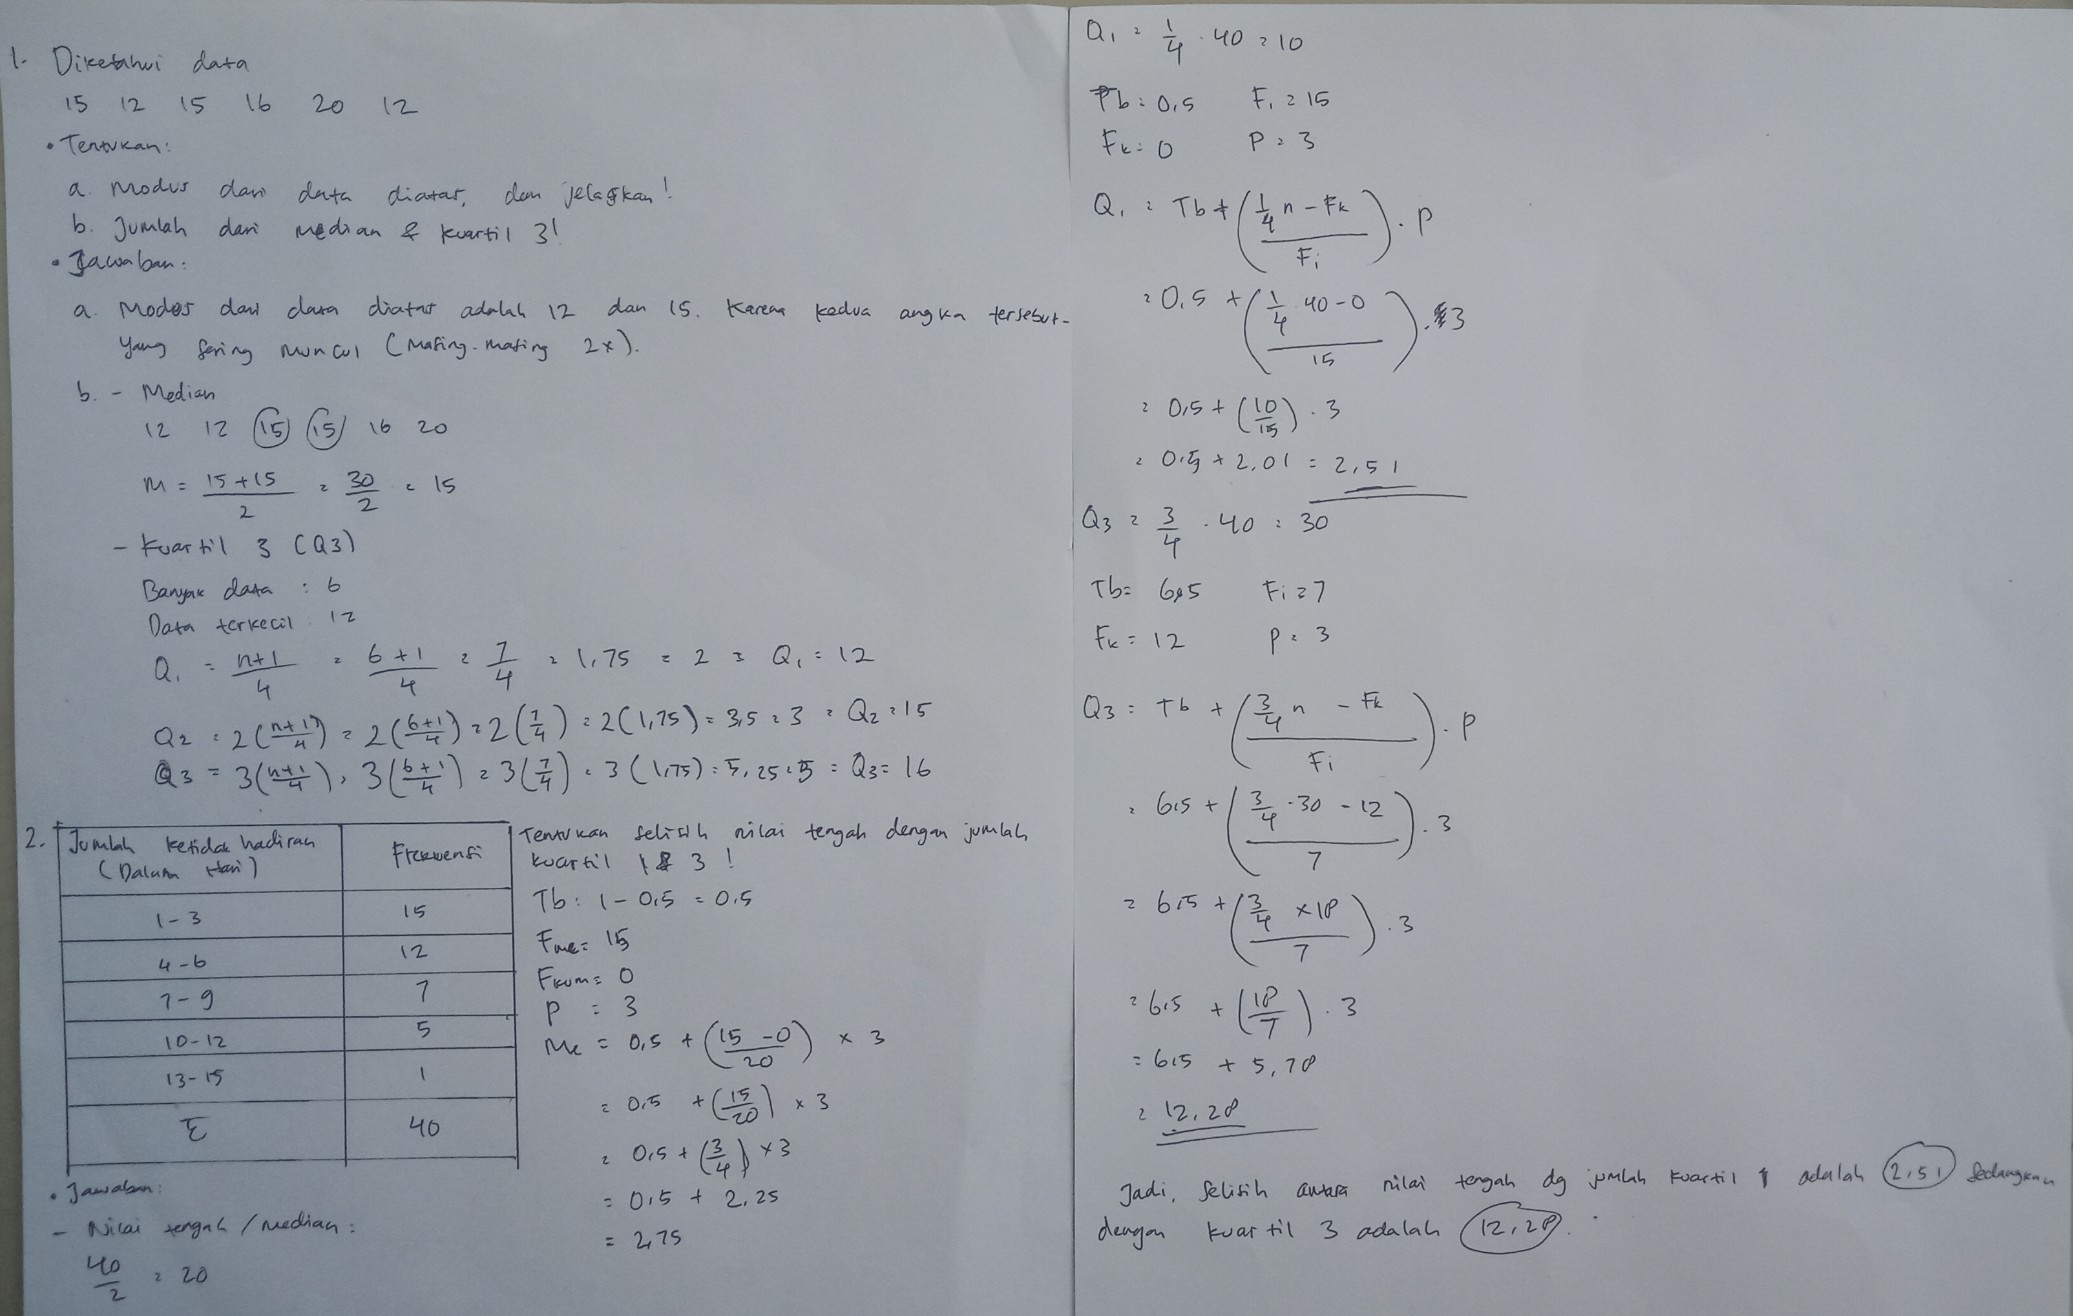 1. Diketahui data
15 12 15 16 20 12
• Tentukan:
a. Modus dari data diatas, dan jelaskan!
b. Jumlah dari median & kuartil 3!
• Jawaban:
a. Modus dari data diatas adalah 12 dan 15. Karena kedua angka tersebut-
yang sering muncul (masing-masing 2x).
b. - Median
12 12 15 15 16 20
M = 15+15/2 = 30/2 = 15
- Kuartil 3 (Q3)
Banyak data : 6
Data terkecil : 12
Q1 = n+1/4 = 6+1/4 = 7/4 = 1,75 = 2 = Q1 = 12
Q2 = 2(n+1/4) = 2(6+1/4) = 2(7/4) = 2(1,75) = 3,5 = 3 = Q2 = 15
Q3 = 3(n+1/4) = 3(6+1/4) = 3(7/4) = 3(1,75) = 5,25 = 5 = Q3 = 16
2. Jumlah ketidak hadiran (Dalam Hari) Frekuensi
1-3 15
4-6 12
7-9 7
10-12 5
13-15 1
Σ 40
• Jawaban:
- Nilai tengah / median :
40/2 = 20
Tentukan selisih nilai tengah dengan jumlah
kuartil 1 & 3 !
Tb : 1 - 0,5 = 0,5
Fme = 15
Fkum = 0
P = 3
Me = 0,5 + (15 - 0/20) x 3
= 0,5 + (15/20) x 3
= 0,5 + (3/4) x 3
= 0,5 + 2,25
= 2,75
Q1 = 1/4 . 40 = 10
Tb = 0,5 Fi = 15
Fk = 0 P = 3
Q1 = Tb + (1/4 n - Fk/Fi) . P
= 0,5 + (1/4 40 - 0/15) . 3
= 0,5 + (10/15) . 3
= 0,5 + 2,01 = 2,51
Q3 = 3/4 . 40 = 30
Tb = 6,5 Fi = 7
Fk = 12 P = 3
Q3 = Tb + (3/4 n - Fk/Fi) . P
= 6,5 + (3/4 . 30 - 12/7) . 3
= 6,5 + (3/4 x 18/7) . 3
= 6,5 + (18/7) . 3
= 6,5 + 5,78
= 12,28
Jadi, selisih antara nilai tengah dg jumlah kuartil 1 adalah 2,51 sedangkan
dengan kuartil 3 adalah 12,28.